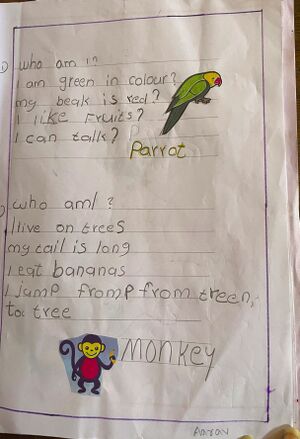 1) who am i?
I am green in colour?
my beak is red?
I like Fruits?
I can talk?
Parrot
who am I ?
I live on trees
my tail is long
I eat bananas
I jump from from treen,
to tree
MonKey
Aarav